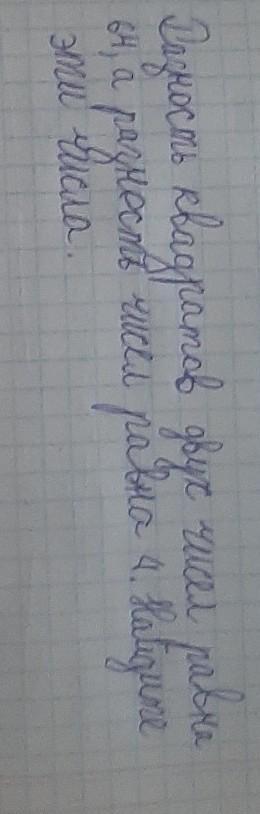 Разность квадратов двух чисел равна
64, а разность чисел равна 4. Найдите
эти числа.